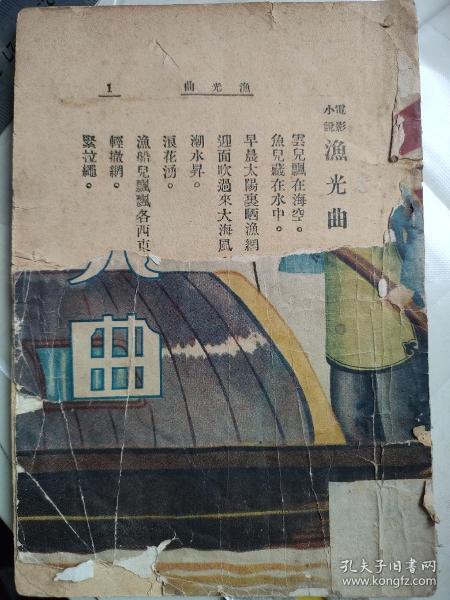 漁光曲
1
電影小說
漁光曲
雲兒飄在海空。
魚兒藏在水中。
早晨太陽裏晒漁網
迎面吹過來大海風。
潮水昇。
浪花湧。
漁船兒飄飄各西東
輕撒網。
緊拉繩。
曲
孔夫子旧书网
www.kongfz.com